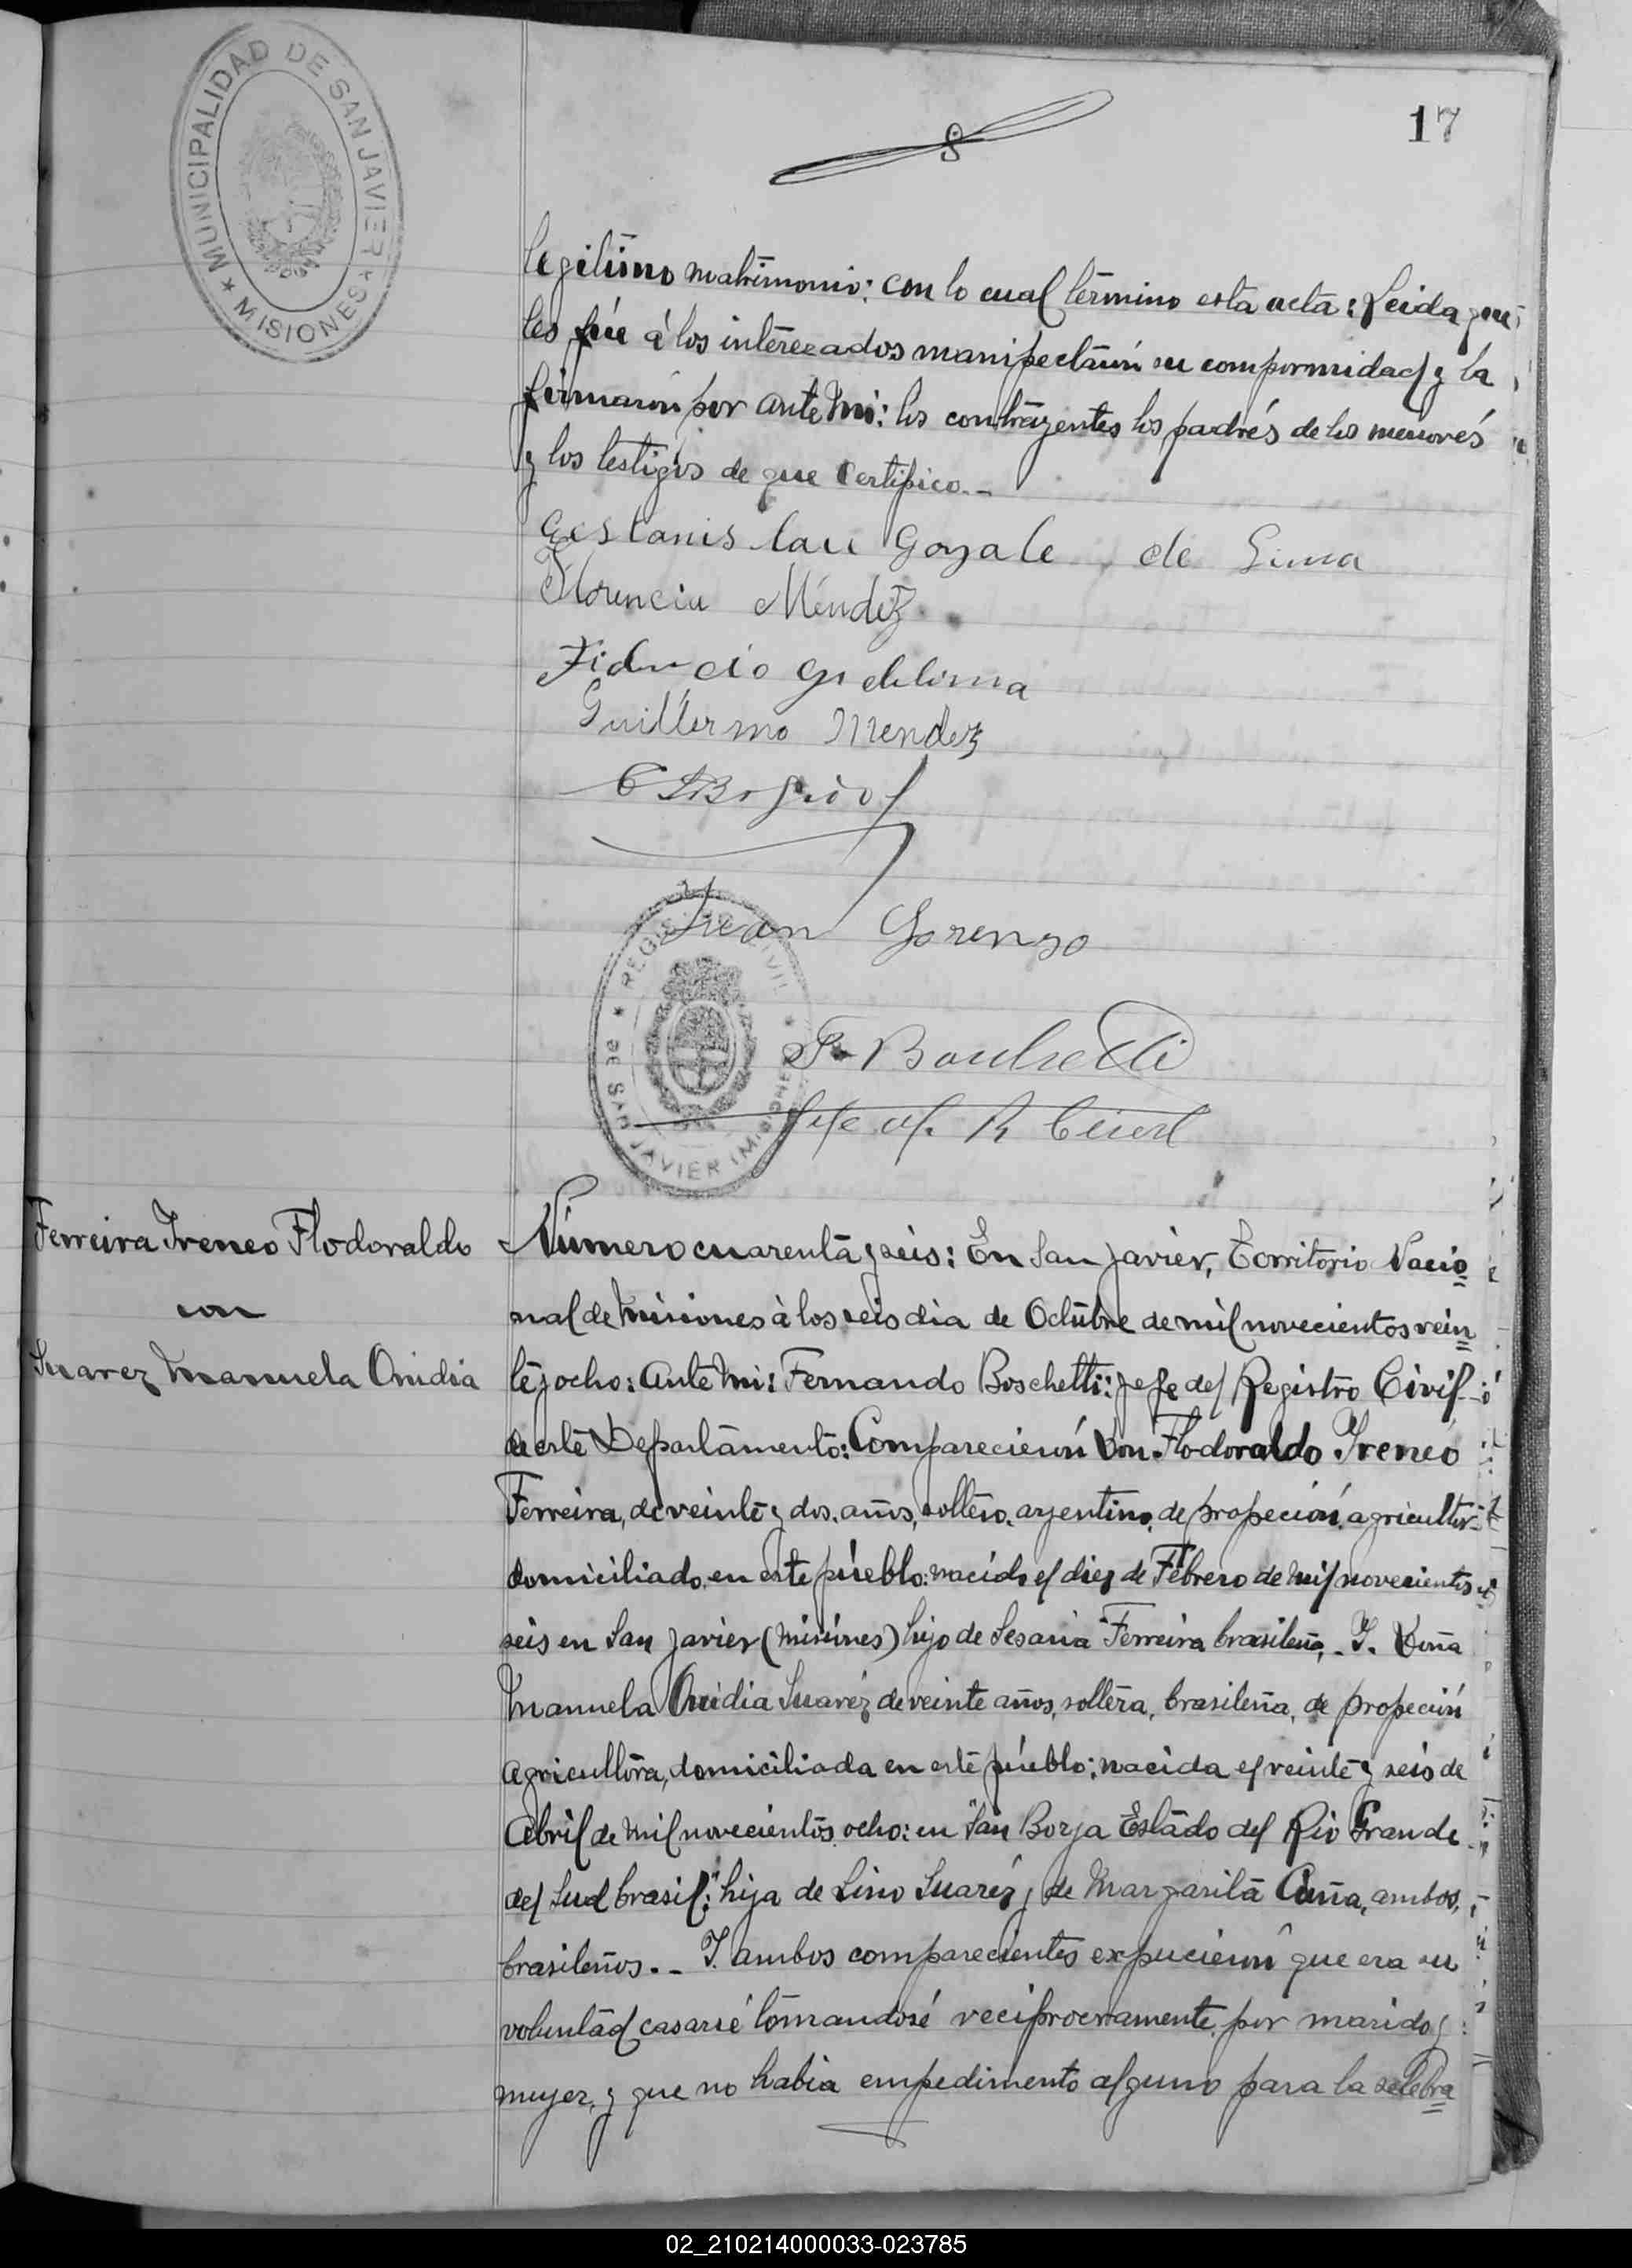 MUNICIPALIDAD DE SAN JAVIER
* MISIONES *
17
8
legitimo matrimonio: con lo cual termino esta acta: Leida que
les fúe á los interezados manifestarón su conformidad y la
firmarón por ante Mi: los contrayentes los padrés de los menorés
y los testigos de que Certifico.-
Gonzale de Lima
Florencia Méndez
Guillermo Mendez
Juan Lorenzo
REGISTRO CIVIL
DE SAN JAVIER (MISIONES)
F Boschetti
Jefe del R Civil
Ferreira Ireneo Flodoraldo
con
Suarez Manuela Onidia
Número cuarenta y seis: En San Javier, Territorio Nacio=
nal de Misiones à los seis dia de Octubre de mil novecientos vein=
te y ocho: Ante Mi: Fernando Boschetti: Jefe del Registro Civil
de este Departamento: Comparecierón Don. Flodoraldo Ireneo
Ferreira, de veinte y dos. años, soltero. argentino, de profeción. agricultor
domiciliado. en este púeblo: nacido el diez de Febrero de Mil novecientos
seis en San Javier (Misiones) hijo de Sesaria Ferreira brasileña, - Y. Doña
Manuela Onidia Suaréz de veinte años, soltera, brasileña, de profeción
agricultora, domiciliada en este púeblo: nacida el veinte y seis de
Abril de Mil novecientos ocho: en "San Borja Estado del Rio Grande
del Sud brasil:" hija de Lino Suaréz y de Margarita Cuña, ambos,
brasileños. - Y. ambos comparecientes expucierón que era su
voluntad casarsé tomandosé reciprocramente por marido y
mujer, y que no habia empedimento alguno para la selebra=
02_210214000033-023785